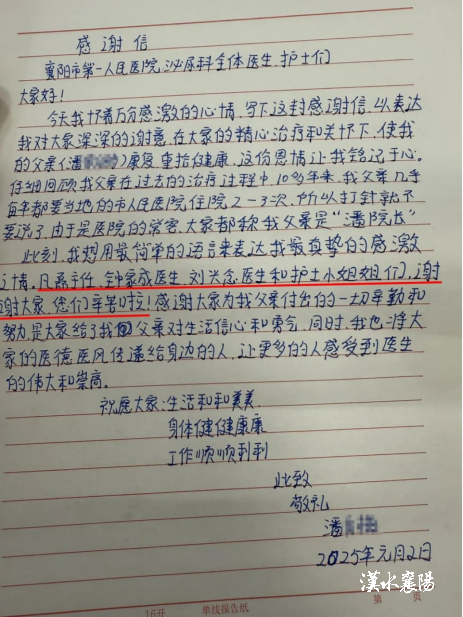 感谢信
襄阳市第一人民医院泌尿科全体医生、护士们
大家好!
今天我怀着万分感激的心情,写下这封感谢信,以表达
我对大家深深的谢意,在大家的精心治疗和关怀下,使我
的父亲(潘)康复,重拾健康,这份恩情让我铭记于心。
仔细回顾我父亲在过去的治疗过程中,10多年来,我父亲几乎
每年都要当地的市人民医院住院2-3次,
要说了,由于是医院的常客,大家都称我父亲是“潘院长”
此刻,我想用最简单的语言来表达我最真挚的感激
之情。主任,钟家成医生,刘兴念医生和护士小姐姐们,谢
谢大家,您们辛苦啦!感谢大家为我父亲付出的一切辛勤和
努力,是大家给了我父亲对生活信心和勇气,同时,我也将大
家的医德医风传递给身边的人,让更多的人感受到医生
的伟大和崇高。
祝愿大家:生活和和美美
身体健健康康
工作顺顺利利
此致
敬礼
潘
2025年元月2日
漢水襄陽
16开 单线报告纸 第 页